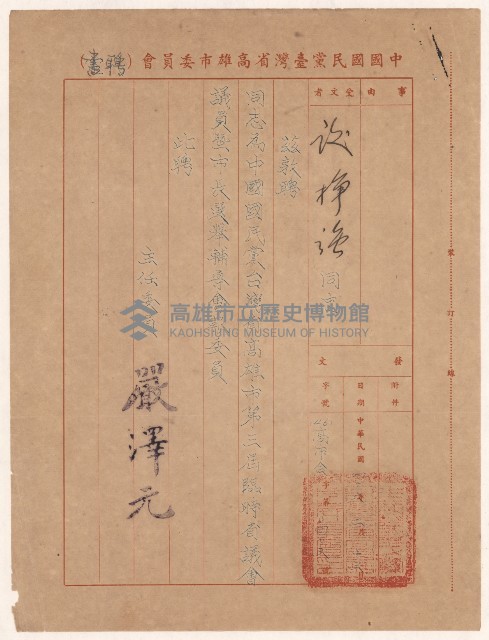 中國國民黨臺灣省高雄市委員會（聘書）
事由
受文者
同志
茲敦聘
同志為中國國民黨台灣省高雄市第三屆臨時省議會
議員暨市長選舉輔導會議委員
此聘
主任委員
嚴澤元
發文
附件
日期
中華民國
字號
裝訂線
高雄市立歷史博物館
KAOHSIUNG MUSEUM OF HISTORY